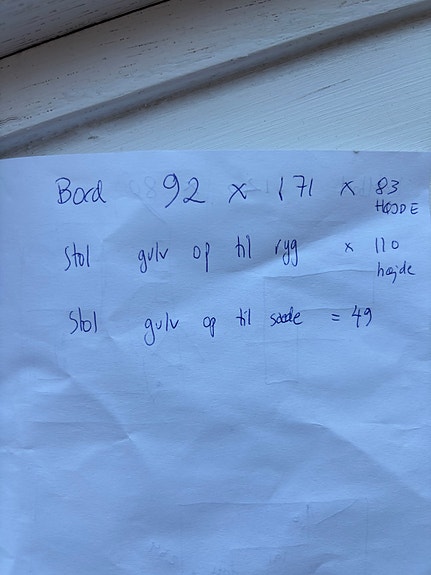 Bord 92 x 171 x 83
HØJDE
Stol gulv op til ryg x 110
højde
Stol gulv op til sæde = 49